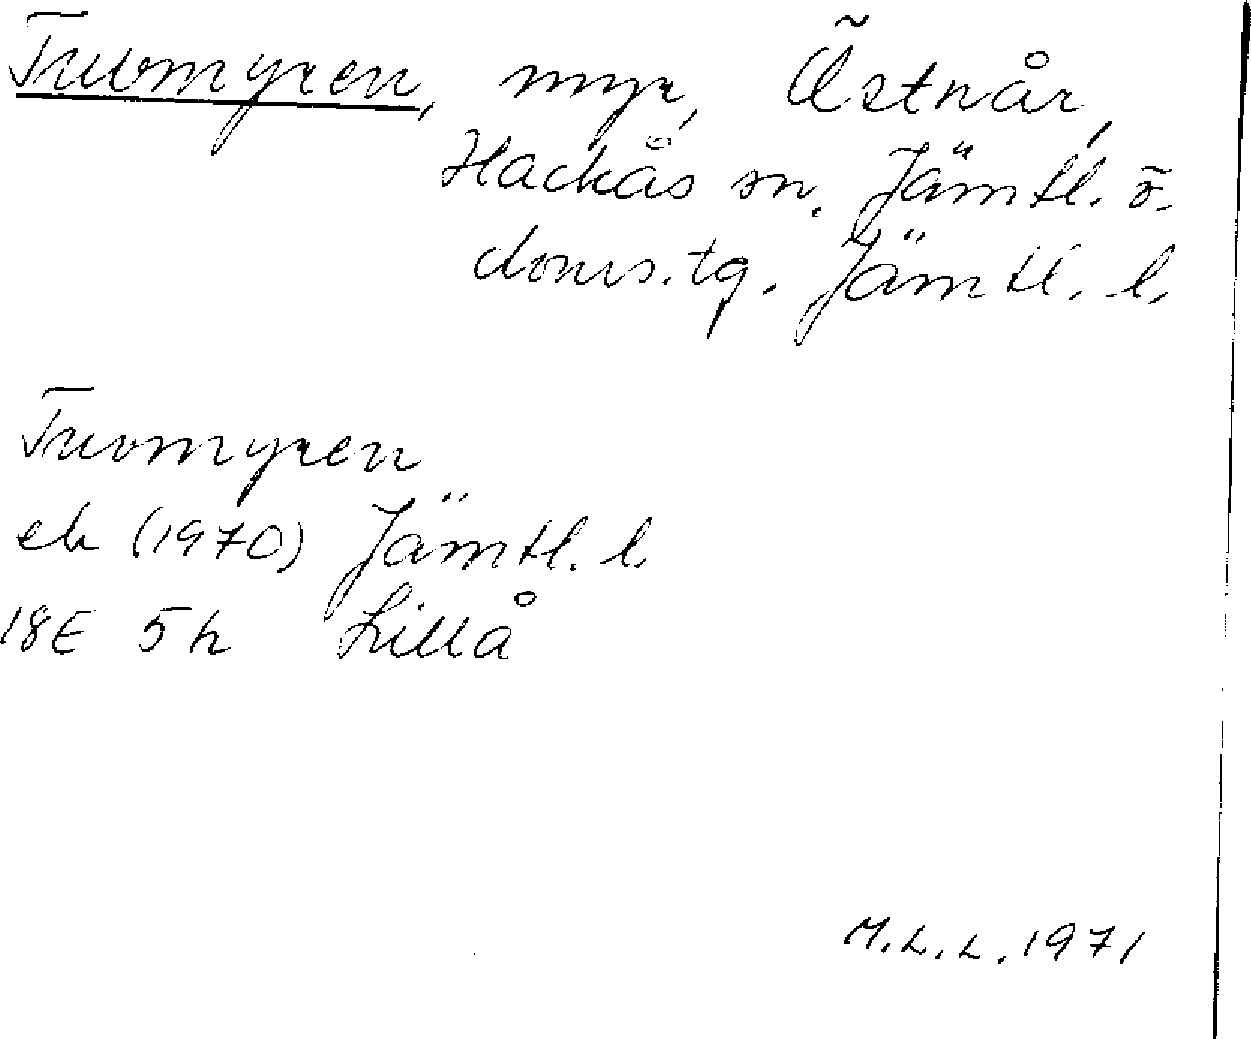 Tuvmyren, myr, Östnår,
Hackås sn. Jämtl. ö.
doms.tg. Jämtl. l.
Tuvmyren
ek (1970) Jämtl. l.
18E 5h Lillå
M.L.L. 1971